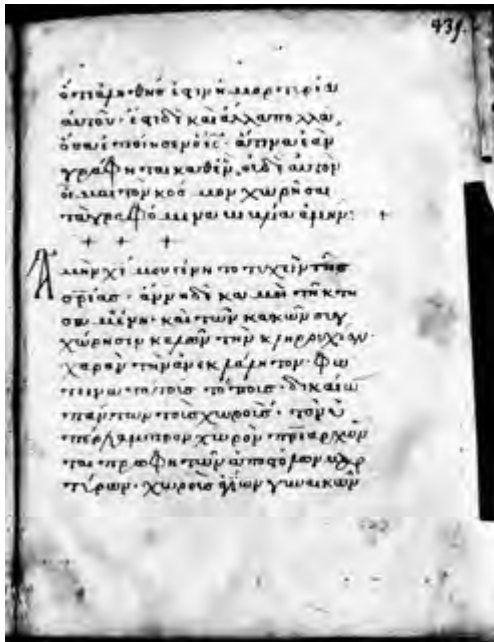 ὅτι ἀληθής ἐστιν ἡ μαρτυρία
αὐτοῦ· ἔστι δὲ καὶ ἄλλα πολλὰ,
ὅσα ἐποίησεν ὁ ις· ἅτινα ἐὰν
γράφηται καθ' ἕν, οὐδὲ αὐτὸν
οἶμαι τὸν κόσμον χωρῆσαι
τὰ γραφόμενα βιβλία ἀμήν: +
+ + +
Ἀμὴν χέ μου τυχεῖν τῆς
σρίας· ἄννα δὲ κα μοὶ τῆ κτη
σαμένη· καὶ τῶν κακῶν συγ
χώρησιν καλῶν τὴν κληρουχίαν·
χαρὰν τὴν ἀνεκλάλητον· φω
τοῖς τόποις· δικαίω
πάντων τοῖς χωροῖς· τὸν ὑ
πέρλαμπρον χωρὸν πριαρχῶν
προφητῶν ἀποστόλων μαρ
τύρων· χωροῖς ἁγίων γυναικῶν